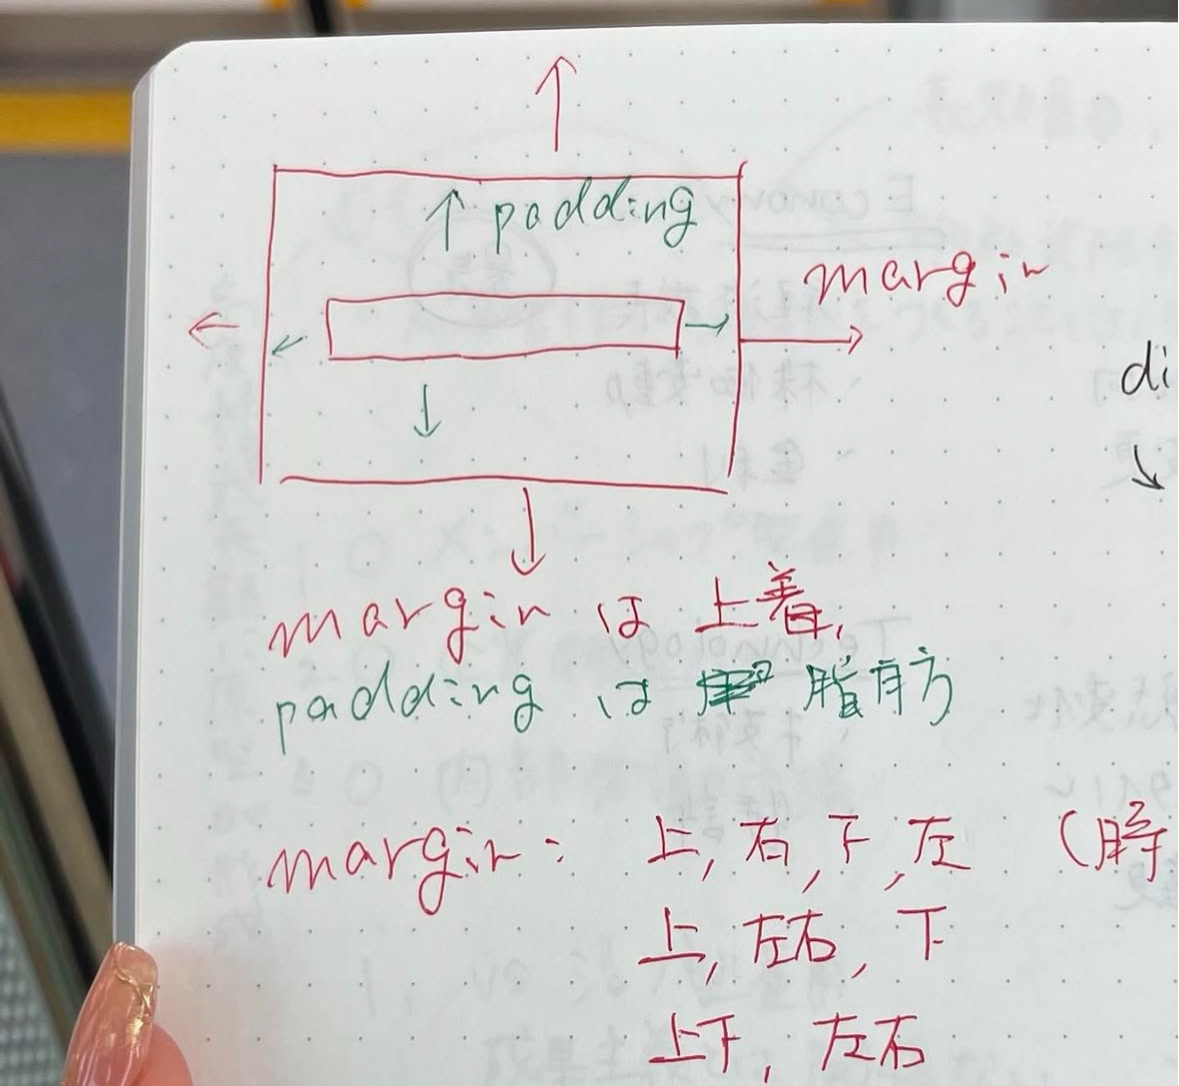 padding
margin
di
margin は 上着,
padding は 脂肪
margin: 上, 右, 下, 左 (時
上, 左右, 下
上下, 左右